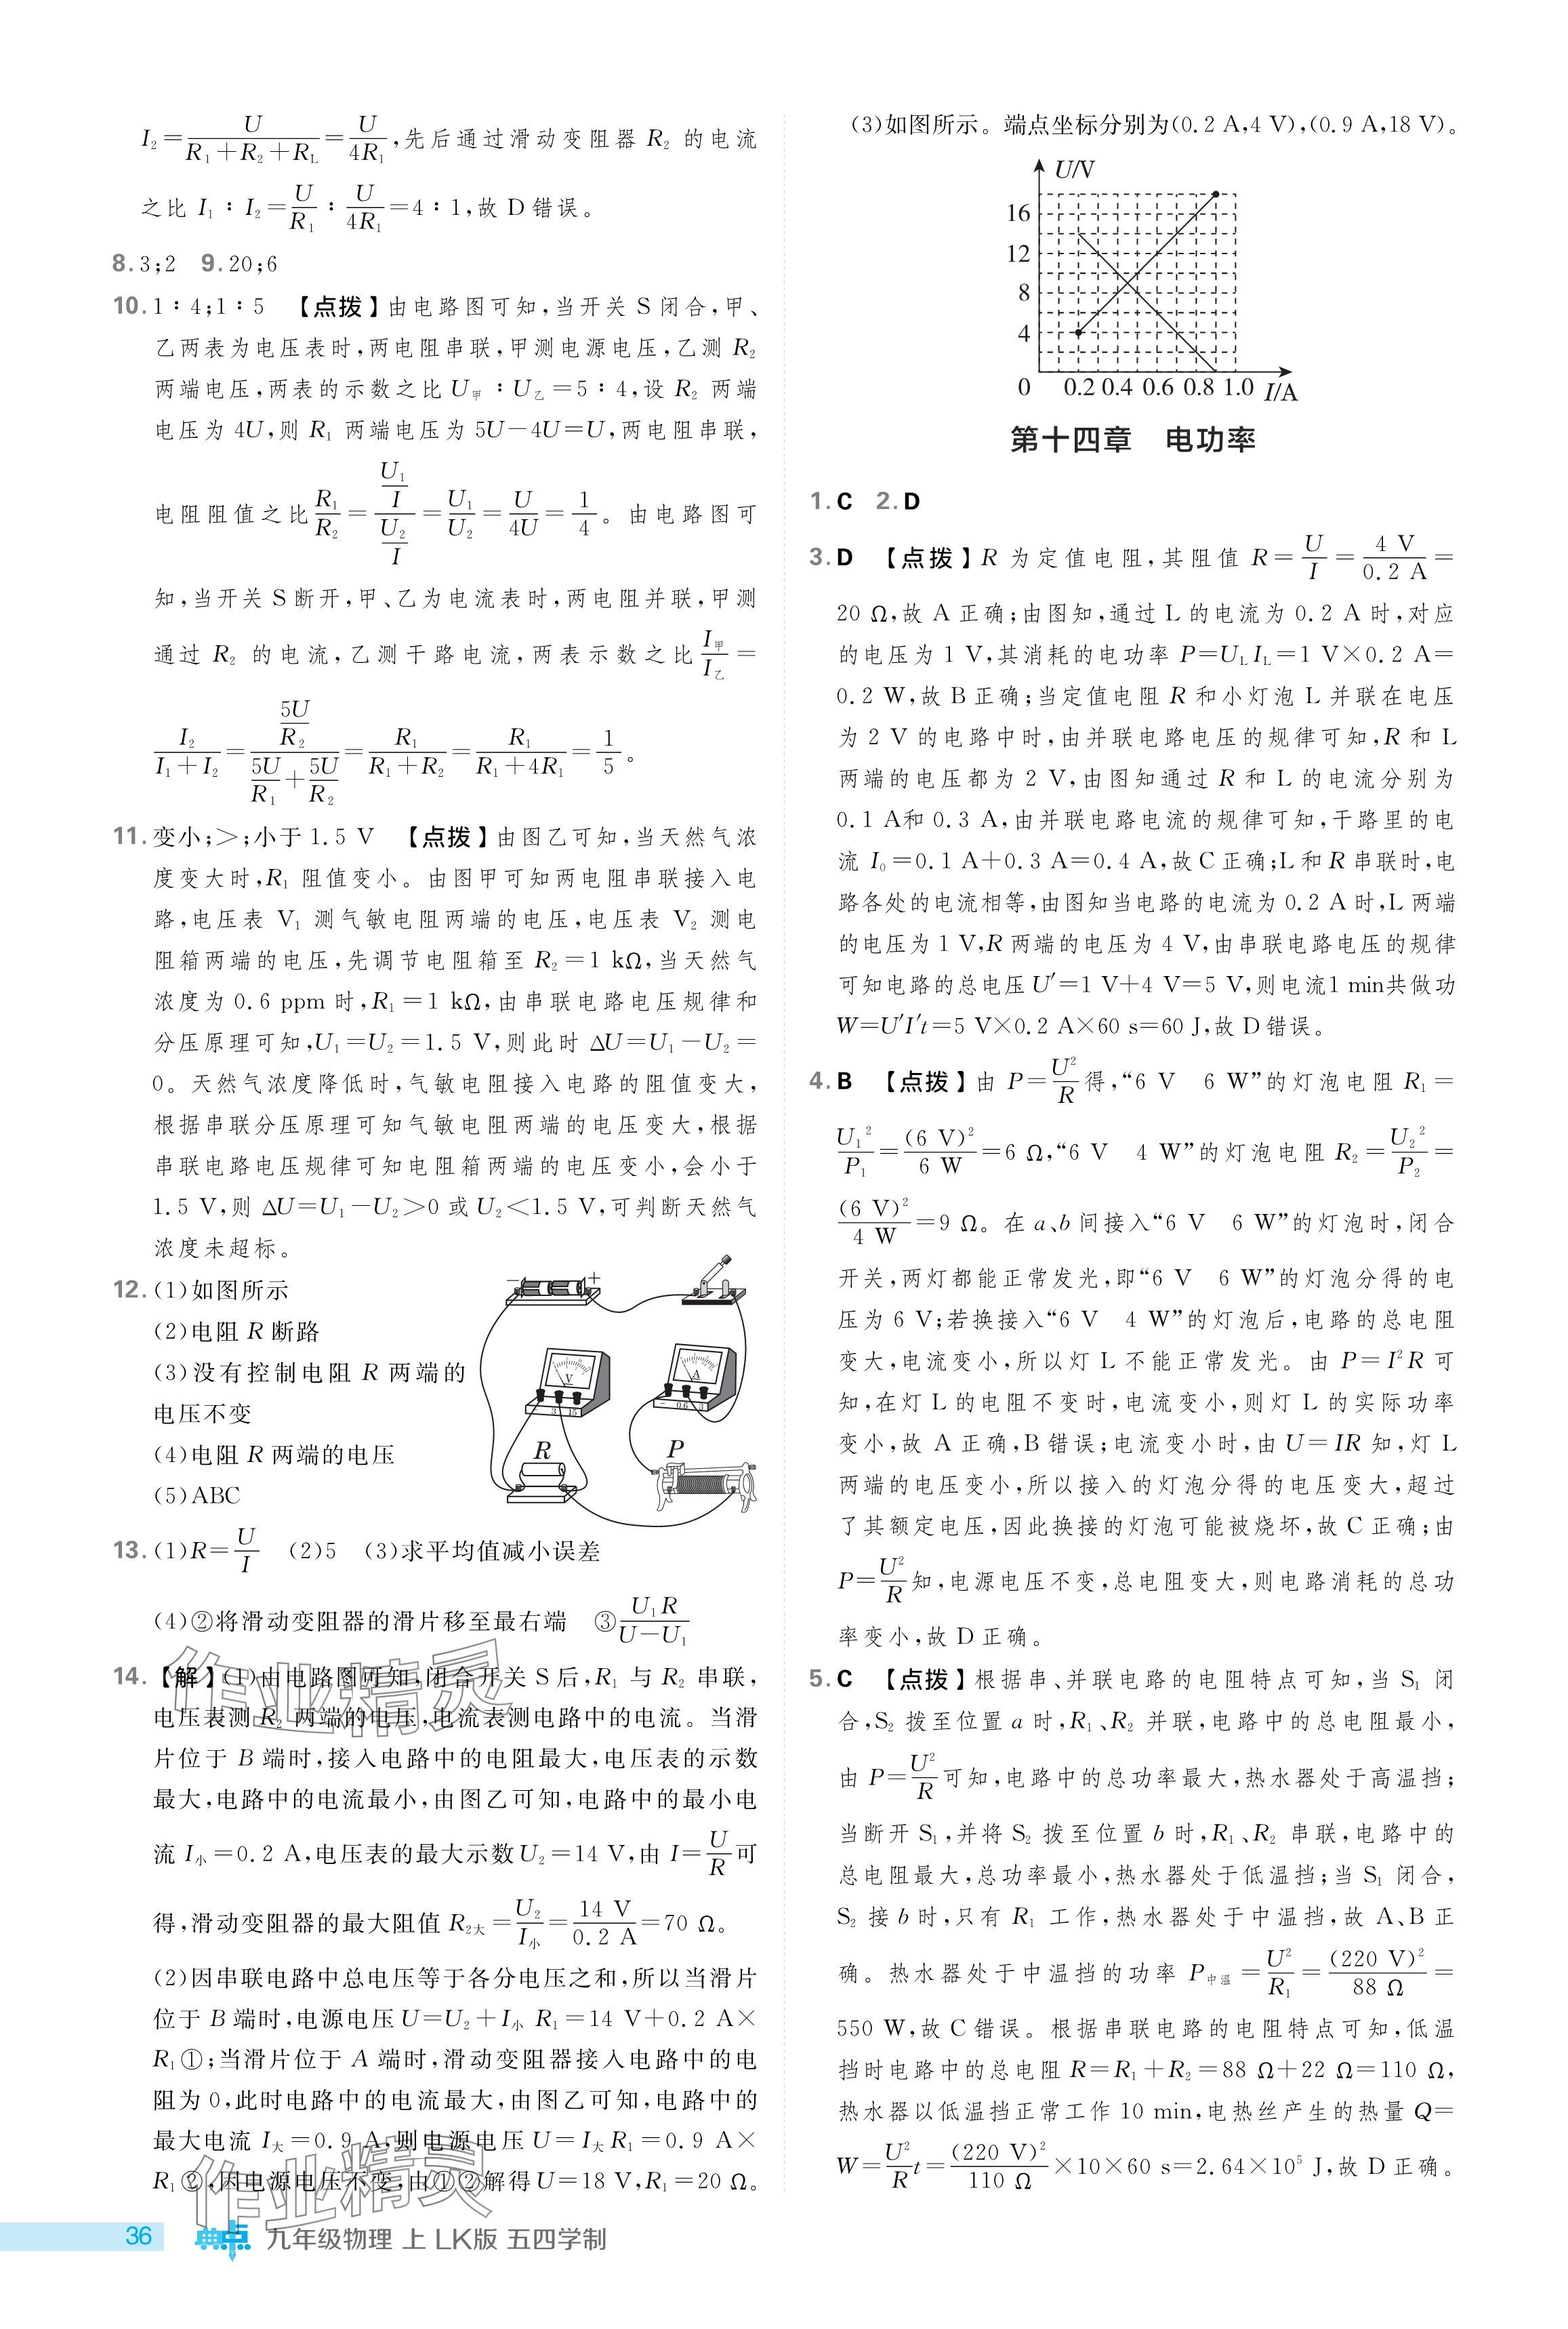 I₂=U/(R₁+R₂+R_L)=U/(4R₁),先后通过滑动变阻器 R₂ 的电流
之比 I₁∶I₂=U/R₁∶U/(4R₁)=4∶1,故 D 错误。
8.3;2 9.20;6
10.1∶4;1∶5 【点拨】由电路图可知,当开关 S 闭合,甲、
乙两表为电压表时,两电阻串联,甲测电源电压,乙测 R₂
两端电压,两表的示数之比 U甲∶U乙=5∶4,设 R₂ 两端
电压为 4U,则 R₁ 两端电压为 5U−4U=U,两电阻串联,
电阻阻值之比 R₁/R₂=(U₁/I)/(U₂/I)=U₁/U₂=U/(4U)=1/4。由电路图可
知,当开关 S 断开,甲、乙为电流表时,两电阻并联,甲测
通过 R₂ 的电流,乙测干路电流,两表示数之比 I甲/I乙=
I₂/(I₁+I₂)=(5U/R₂)/(5U/R₁+5U/R₂)=R₁/(R₁+R₂)=R₁/(R₁+4R₁)=1/5。
11.变小;>;小于 1.5 V 【点拨】由图乙可知,当天然气浓
度变大时,R₁ 阻值变小。由图甲可知两电阻串联接入电
路,电压表 V₁ 测气敏电阻两端的电压,电压表 V₂ 测电
阻箱两端的电压,先调节电阻箱至 R₂=1 kΩ,当天然气
浓度为 0.6 ppm 时,R₁=1 kΩ,由串联电路电压规律和
分压原理可知,U₁=U₂=1.5 V,则此时 ΔU=U₁−U₂=
0。天然气浓度降低时,气敏电阻接入电路的阻值变大,
根据串联分压原理可知气敏电阻两端的电压变大,根据
串联电路电压规律可知电阻箱两端的电压变小,会小于
1.5 V,则 ΔU=U₁−U₂>0 或 U₂<1.5 V,可判断天然气
浓度未超标。
12.(1)如图所示
(2)电阻 R 断路
(3)没有控制电阻 R 两端的
电压不变
(4)电阻 R 两端的电压
(5)ABC
− +
V
3 15
A
− 0.6 3
R
P
13.(1)R=U/I (2)5 (3)求平均值减小误差
(4)②将滑动变阻器的滑片移至最右端 ③U₁R/(U−U₁)
14.【解】(1)由电路图可知,闭合开关 S 后,R₁ 与 R₂ 串联,
电压表测 R₂ 两端的电压,电流表测电路中的电流。当滑
片位于 B 端时,接入电路中的电阻最大,电压表的示数
最大,电路中的电流最小,由图乙可知,电路中的最小电
流 I小=0.2 A,电压表的最大示数 U₂=14 V,由 I=U/R 可
得,滑动变阻器的最大阻值 R₂大=U₂/I小=14 V/0.2 A=70 Ω。
(2)因串联电路中总电压等于各分电压之和,所以当滑片
位于 B 端时,电源电压 U=U₂+I小 R₁=14 V+0.2 A×
R₁①;当滑片位于 A 端时,滑动变阻器接入电路中的电
阻为 0,此时电路中的电流最大,由图乙可知,电路中的
最大电流 I大=0.9 A,则电源电压 U=I大 R₁=0.9 A×
R₁②,因电源电压不变,由①②解得 U=18 V,R₁=20 Ω。
作业精灵
作业精灵
(3)如图所示。端点坐标分别为(0.2 A,4 V),(0.9 A,18 V)。
U/V
16
12
8
4
0 0.2 0.4 0.6 0.8 1.0 I/A
第十四章 电功率
1.C 2.D
3.D 【点拨】R 为定值电阻,其阻值 R=U/I=4 V/0.2 A=
20 Ω,故 A 正确;由图知,通过 L 的电流为 0.2 A 时,对应
的电压为 1 V,其消耗的电功率 P=U_L I_L=1 V×0.2 A=
0.2 W,故 B 正确;当定值电阻 R 和小灯泡 L 并联在电压
为 2 V 的电路中时,由并联电路电压的规律可知,R 和 L
两端的电压都为 2 V,由图知通过 R 和 L 的电流分别为
0.1 A和 0.3 A,由并联电路电流的规律可知,干路里的电
流 I₀=0.1 A+0.3 A=0.4 A,故 C 正确;L 和 R 串联时,电
路各处的电流相等,由图知当电路的电流为 0.2 A 时,L 两端
的电压为 1 V,R 两端的电压为 4 V,由串联电路电压的规律
可知电路的总电压 U′=1 V+4 V=5 V,则电流1 min共做功
W=U′I′t=5 V×0.2 A×60 s=60 J,故 D 错误。
4.B 【点拨】由 P=U²/R 得,“6 V 6 W”的灯泡电阻 R₁=
U₁²/P₁=(6 V)²/6 W=6 Ω,“6 V 4 W”的灯泡电阻 R₂=U₂²/P₂=
(6 V)²/4 W=9 Ω。在 a、b 间接入“6 V 6 W”的灯泡时,闭合
开关,两灯都能正常发光,即“6 V 6 W”的灯泡分得的电
压为 6 V;若换接入“6 V 4 W”的灯泡后,电路的总电阻
变大,电流变小,所以灯 L 不能正常发光。由 P=I²R 可
知,在灯 L 的电阻不变时,电流变小,则灯 L 的实际功率
变小,故 A 正确,B 错误;电流变小时,由 U=IR 知,灯 L
两端的电压变小,所以接入的灯泡分得的电压变大,超过
了其额定电压,因此换接的灯泡可能被烧坏,故 C 正确;由
P=U²/R 知,电源电压不变,总电阻变大,则电路消耗的总功
率变小,故 D 正确。
5.C 【点拨】根据串、并联电路的电阻特点可知,当 S₁ 闭
合,S₂ 拨至位置 a 时,R₁、R₂ 并联,电路中的总电阻最小,
由 P=U²/R 可知,电路中的总功率最大,热水器处于高温挡;
当断开 S₁,并将 S₂ 拨至位置 b 时,R₁、R₂ 串联,电路中的
总电阻最大,总功率最小,热水器处于低温挡;当 S₁ 闭合,
S₂ 接 b 时,只有 R₁ 工作,热水器处于中温挡,故 A、B 正
确。热水器处于中温挡的功率 P中温=U²/R₁=(220 V)²/88 Ω=
550 W,故 C 错误。根据串联电路的电阻特点可知,低温
挡时电路中的总电阻 R=R₁+R₂=88 Ω+22 Ω=110 Ω,
热水器以低温挡正常工作 10 min,电热丝产生的热量 Q=
W=U²/R t=(220 V)²/110 Ω×10×60 s=2.64×10⁵ J,故 D 正确。
36 典点 九年级物理 上 LK版 五四学制